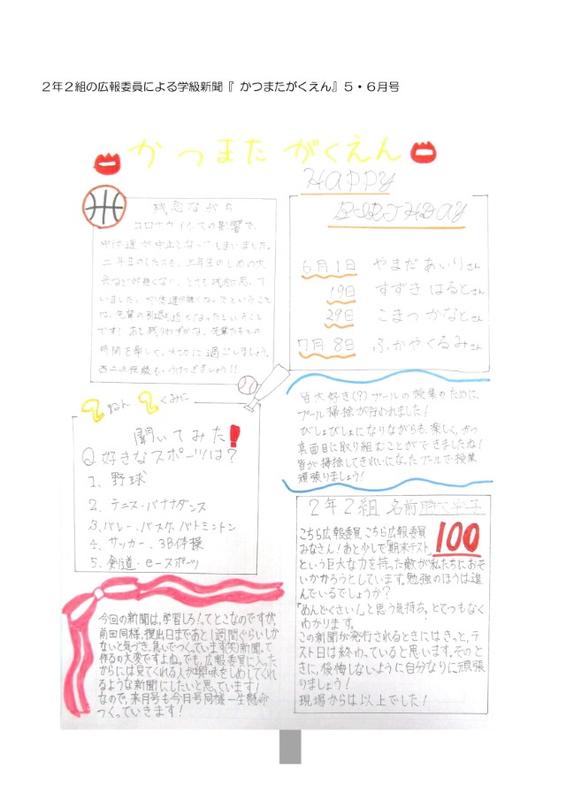 ２年２組の広報委員による学級新聞『 かつまたがくえん』５・６月号
かつまたがくえん
残念ながら
コロナウイルスの影響で、
中体連が中止となってしまいました。
です！あと残りわずかな、先輩たちとの
時間を楽しく、大切に過ごしましょう。
HAPPY
BIRTHDAY
6月1日 やまだ あいりさん
19日 すずき はるとさん
29日 こまつ かなとさん
7月8日 ふかや くるみさん
皆大好き(?)プールの授業のために、
プール掃除が行われました！
びしょびしょになりながらも、楽しく、かつ
真面目に取り組むことができましたね！
皆が掃除してきれいになったプールで授業
頑張りましょう！
2ねん 2くみに
聞いてみた！
Q好きなスポーツは？
1. 野球
2. テニス・バナナダンス
3. バレー・バスケ・バトミントン
4. サッカー・3B体操
5. 剣道・eスポーツ
2年2組
100
こちら広報委員こちら広報委員
みなさん！あと少しで「期末テスト」
という巨大な力を持った敵が私たちにおそ
いかかろうとしています。勉強のほうは進
んでいるでしょうか？
「めんどくさい」と思う気持ち、とてつもなく
わかります。
この新聞が発行されるときにはきっと、テ
スト日は終わっていると思います。そのと
きに、後悔しないように自分なりに頑張
りましょう！
現場からは以上でした！
今回の新聞は、学習しろ！てとこなのですが、
前回同様、提出日まであと1週間ぐらいしか
ないと気づき、急いでつくっています(笑)新聞って
作るの大変ですよね。でも、広報委員に入った
からには見てくれる人が興味をしめしてくれ
るような新聞にしたいと思っています！
なので、来月号も今月号同様一生懸命
つくっていきます！